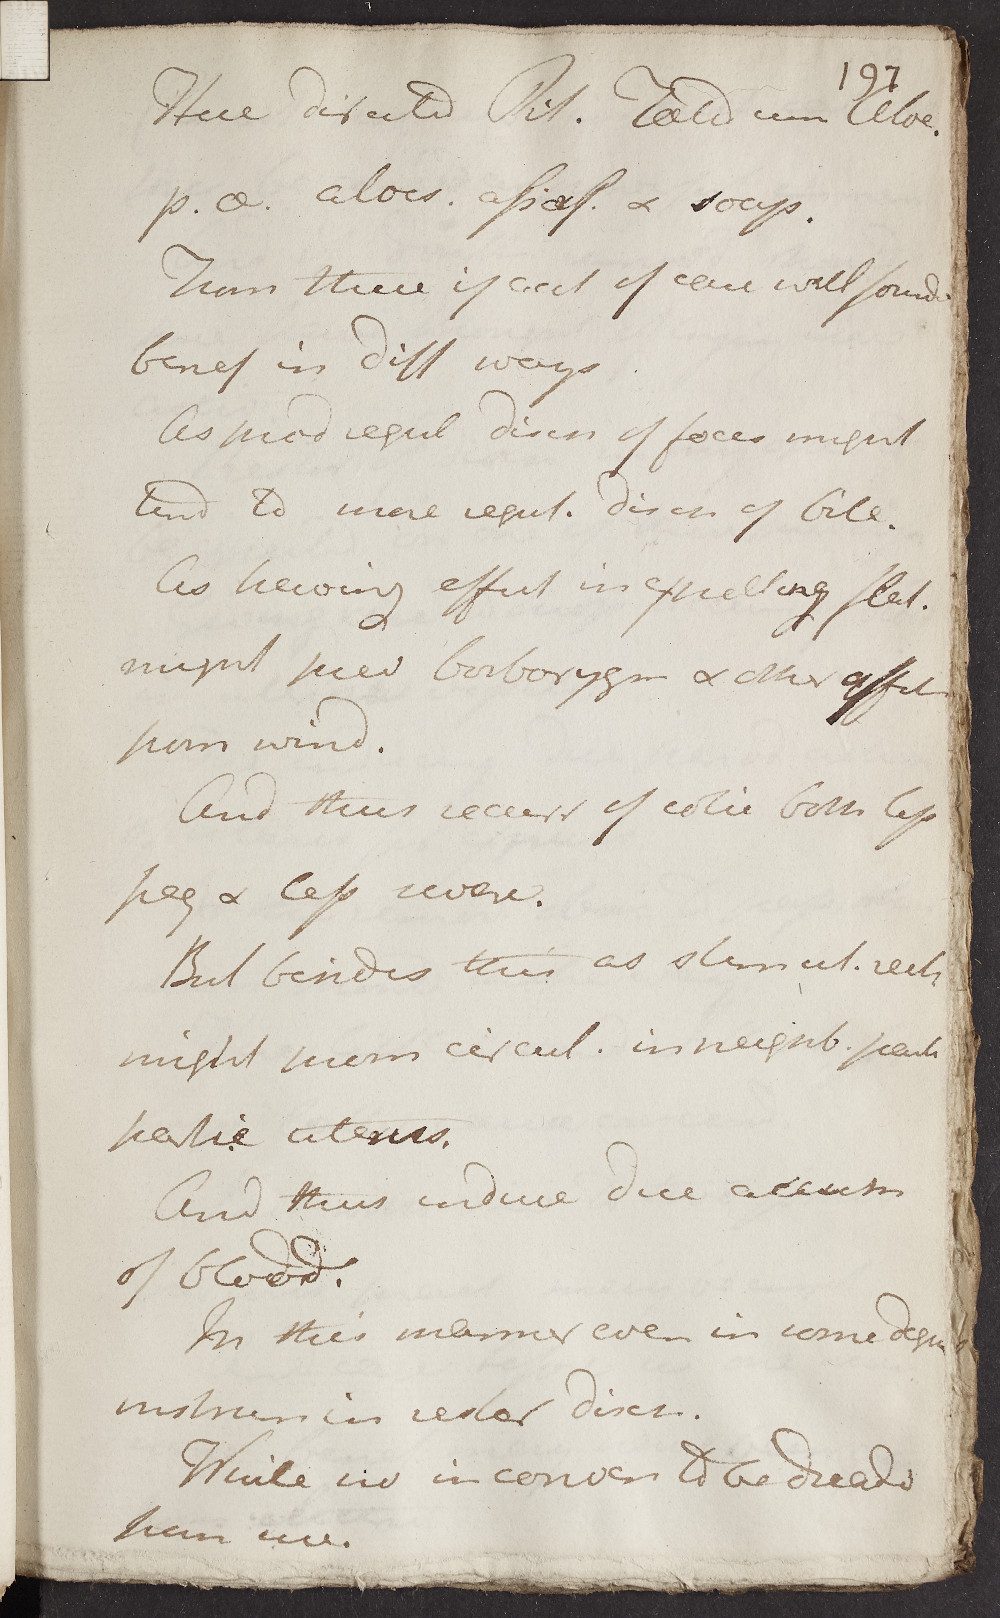 197
Here directed Pil. Foetid cum Aloe.
p. æ. aloes. assaf. & soap.
From these if acct of case well found
benef in diff ways
As prod regul disch of foeces might
tend to more regul. disch of bile.
As having effect in expelling flat.
might prev borborygm & other affect
from wind.
And thus recurr of colic both less
freq & less severe.
But besides this as stimul. rect
might prom circul. in neighb. parts
partic uterus.
And thus induce due accum
of blood.
In this manner even in some degree
instrum in restor disch.
While no inconven to be dreadd
from use.